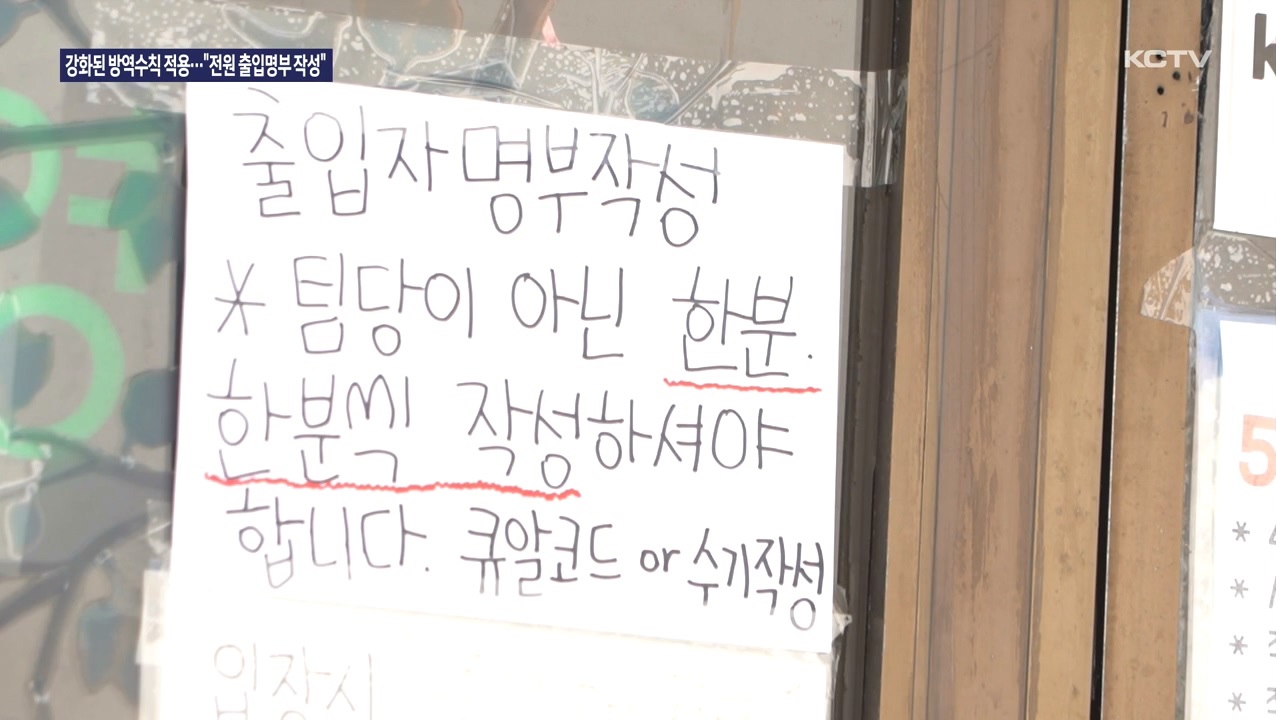 강화된 방역수칙 적용…"전원 출입명부 작성"
KCTV
출입자 명부작성
* 팀당이 아닌 한분.
한분씩 작성하셔야
합니다. 큐알코드 or 수기작성
입장시
k
5
*
*
*
*